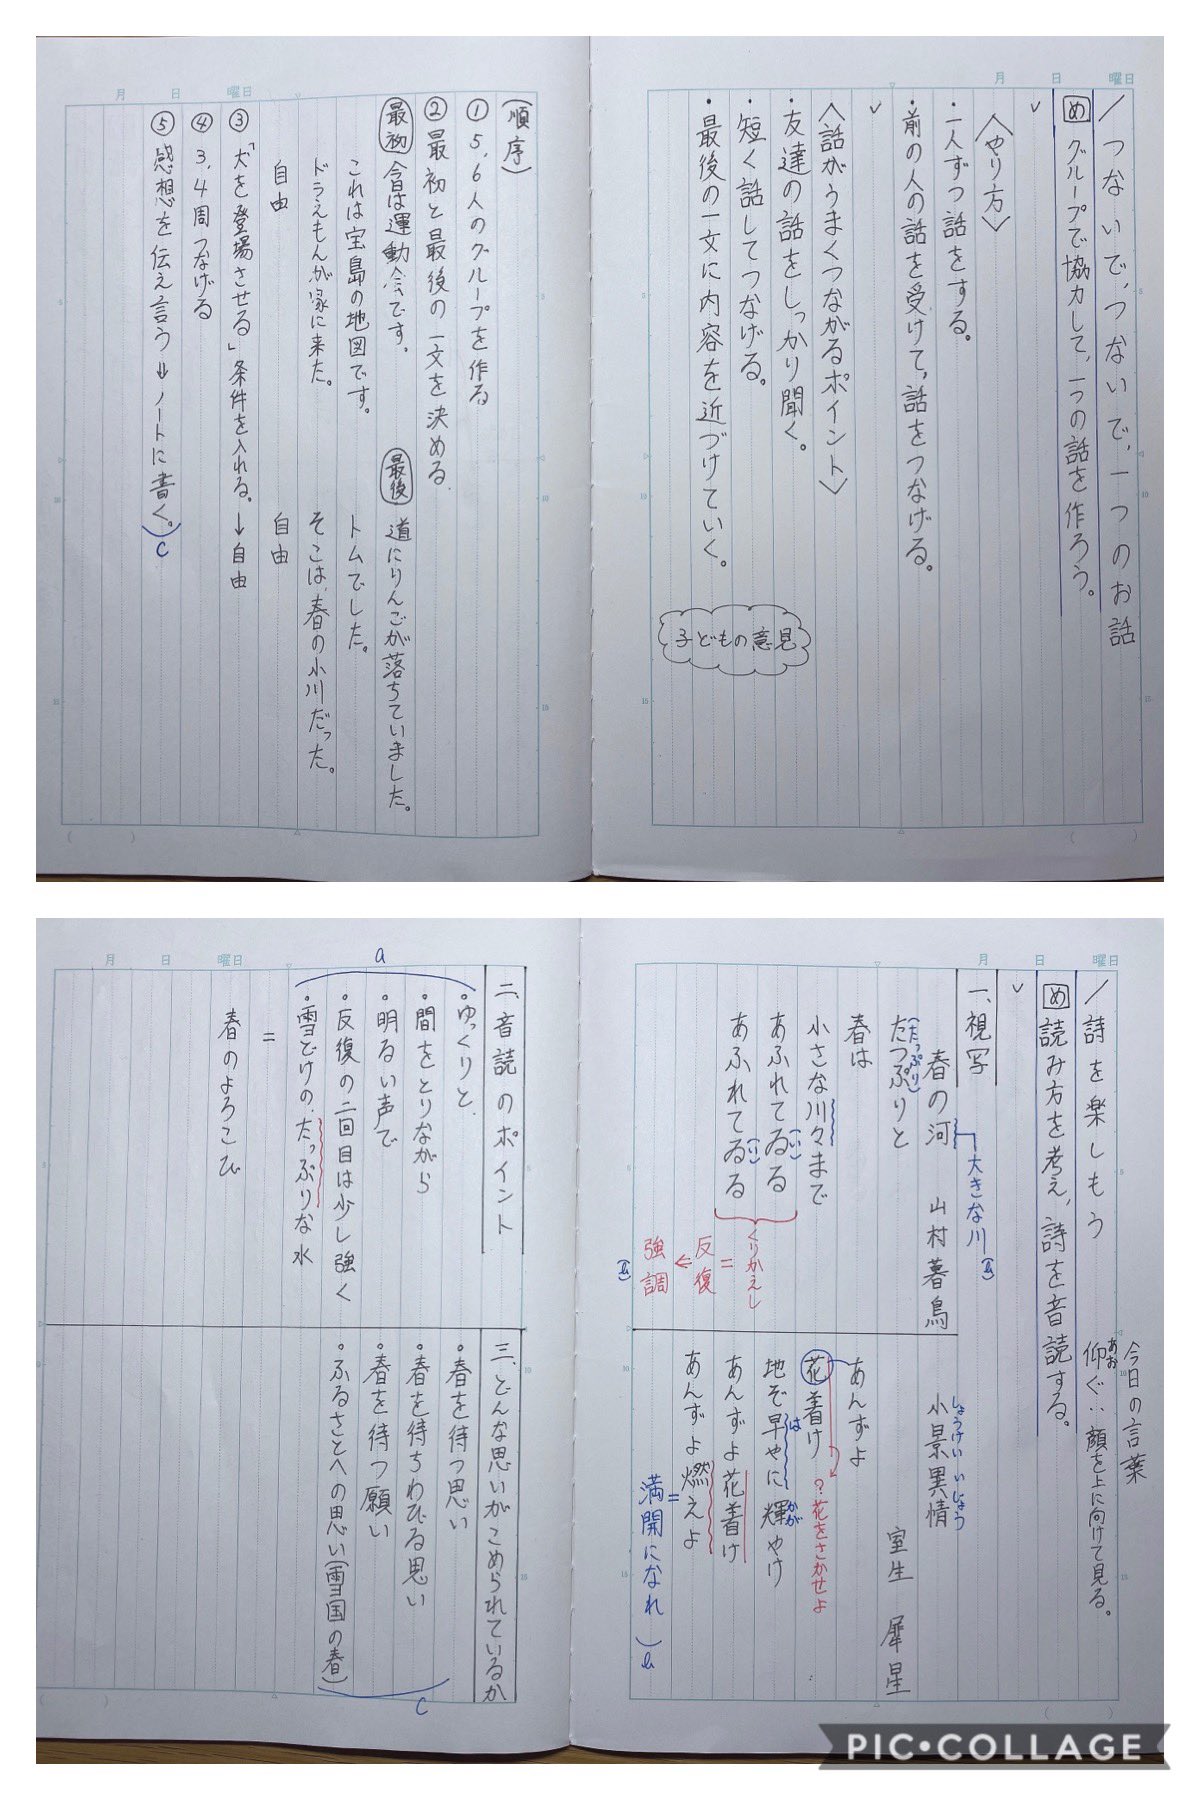 月 日 曜日
／つないで、つないで、一つのお話
め グループで協力して、一つの話を作ろう。
〈やり方〉
・一人ずつ話をする。
・前の人の話を受けて、話をつなげる。
〈話がうまくつながるポイント〉
・友達の話をしっかり聞く。
・短く話してつなげる。
・最後の一文に内容を近づけていく。
子どもの意見
月 日 曜日
(順序)
① 5、6人のグループを作る
② 最初と最後の一文を決める。
最初 今日は運動会です。
これは宝島の地図です。
ドラえもんが家に来た。
自由
最後 道にりんごが落ちていました。
トムでした。
そこは、春の小川だった。
自由
③「犬を登場させる」条件を入れる。→自由
④ 3、4周つなげる
⑤ 感想を伝え言う⇒ノートに書く。) C
月 日 曜日
今日の言葉
仰ぐ…顔を上に向けて見る。
あお
／詩を楽しもう
め 読み方を考え、詩を音読する。
一、視写
大きな川 (b)
春の河 山村暮鳥
たつぷりと
(たっぷり)
春は
小さな川々まで
あふれてゐる
(い)
あふれてゐる
(い)
くりかえし
=
反復
⇐
強調
(b)
小景異情
しょうけい いじょう
室生 犀星
あんずよ
花着け ？花をさかせよ
地ぞ早やに輝やけ
は かが
あんずよ花着け
あんずよ燃えよ
=
満開になれ ) b
月 日 曜日
二、音読のポイント
a
・ゆっくりと、
・間をとりながら
・明るい声で
・反復の二回目は少し強く
・雪どけの、たっぷりな水
=
春のよろこび
三、どんな思いがこめられているか
・春を待つ思い
・春を待ちわびる思い
・春を待つ願い
・ふるさとへの思い(雪国の春)
C
PIC•COLLAGE